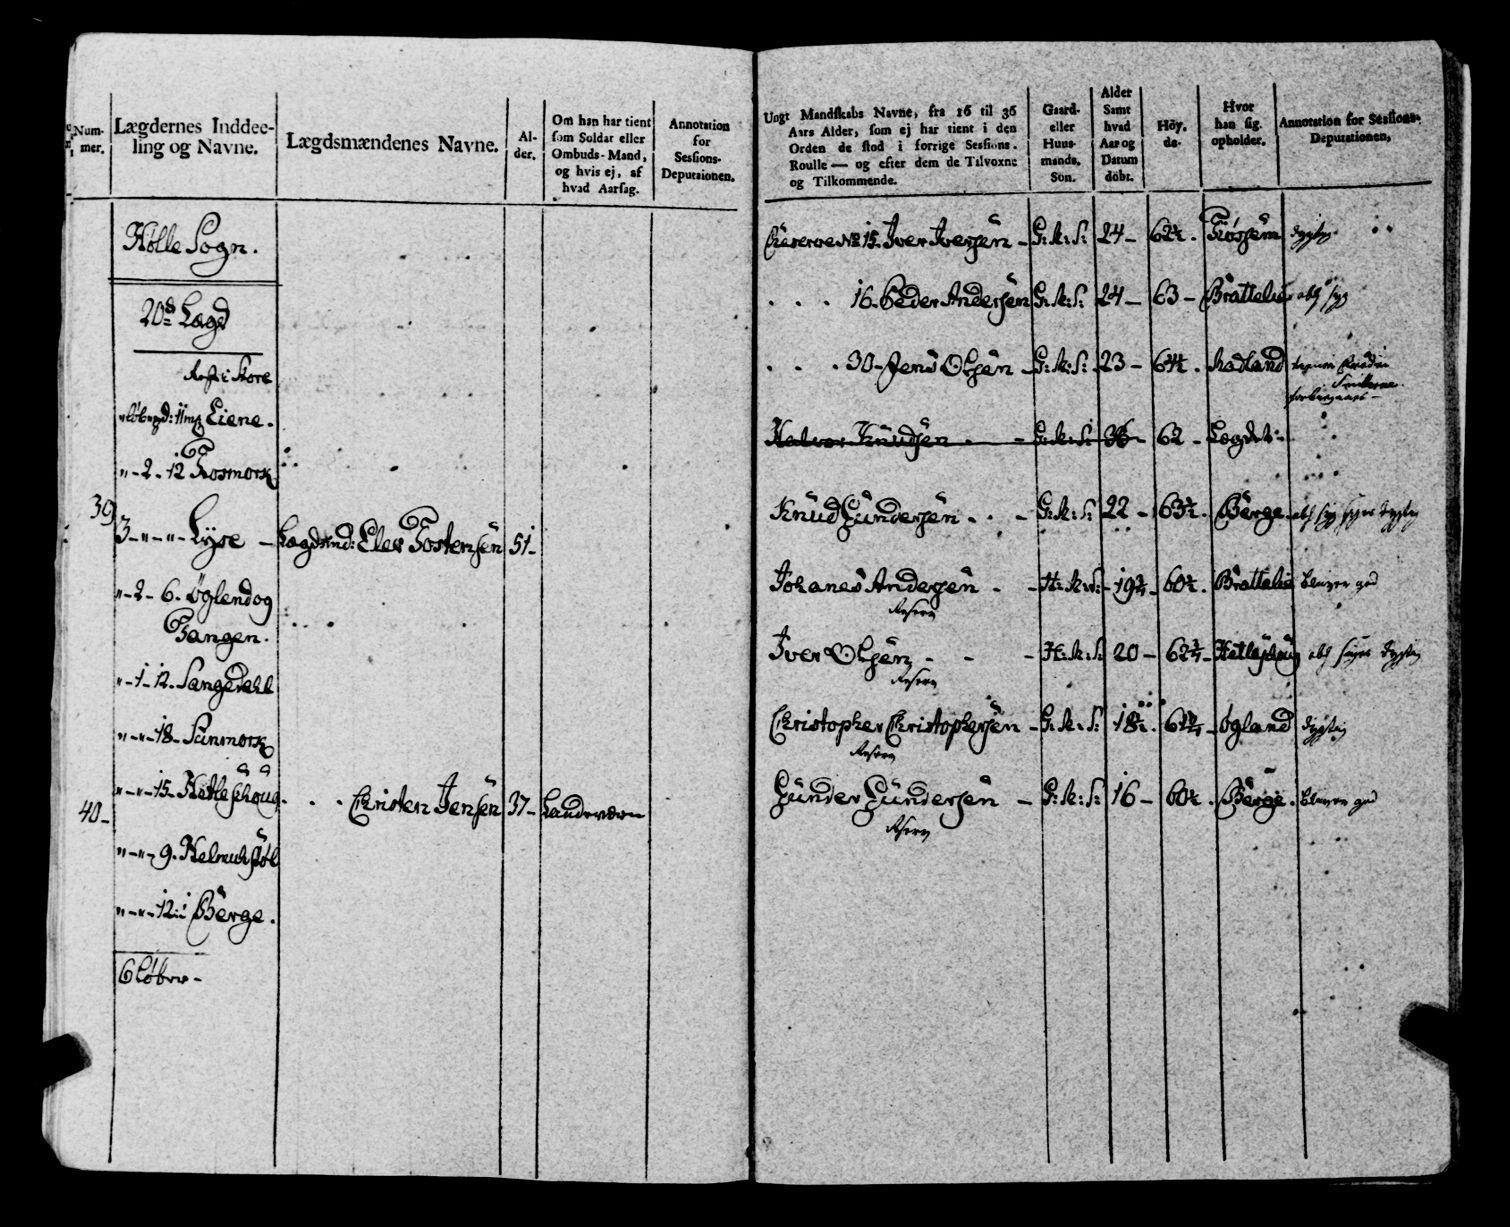 Num-
mer.
Lægdernes Inddee-
ling og Navne.
Lægdsmændenes Navne.
Al-
der.
Om han har tient
som Soldar eller
Ombuds-Mand,
og hvis ej, af
hvad Aarsag.
Annotation
for
Sessions-
Deputaionen.
Holle Sogn.
20de Lægd
Rest i Skore
Eiene.
"-2-12 Fosmork
39
3-"-"- Lyse - Lægdsmd: Elev Tostensen 51-
"-2-6. Øglend og
Tangen.
"-1-12. Sangedahl
"-"-18- Sunmork
"-"-15- Hatleschoug . . . Christen Jensen 37- Landeværn
40-
"-"-9. Helmichstøl
"-"-12: i Berge.
6 Løber -
Ungt Mandskabs Navne, fra 16 til 36
Aars Alder, som ej har tient i den
Orden de stod i forrige Sessions-
Roulle — og efter dem de Tilvoxne
og Tilkommende.
Gaard-
eller
Huus-
mands.
Søn.
Alder
Samt
hvad
Aar og
Datum
döbt.
Höy.
de.
Hvor
han sig
opholder.
Annotation for Sessions-
Deputationen,
Reserve No 15. Iver Iversen - G: M: S: 24- 62½. Fossem dygtig.
. . . 16. Peder Andersen G: M: S: 24- 63- Brattelie abs syg
. . . 30- Jens Olsen - G: M: S: 23- 64½. Madland
Halvor Knudsen - - G: M: S: 36- 62- Lægdet:
Knud Gundersen - . - G: M: S: 22- 63½. Berge. abs syg siges dygtig
Johanes Andersen - - H: M: S: 19¾- 60½. Brattelie
Reserv
Iver Olsen - - - H: M: S: 20- 62¾- Hatleschoug abs siges dygtig
Reserv
Christopher Christophersen - G: M: S: 18½. Øgland dygtig
Reserv
Gunder Gundersen - G: M: S: 16- 60½. Berge.
Reserv